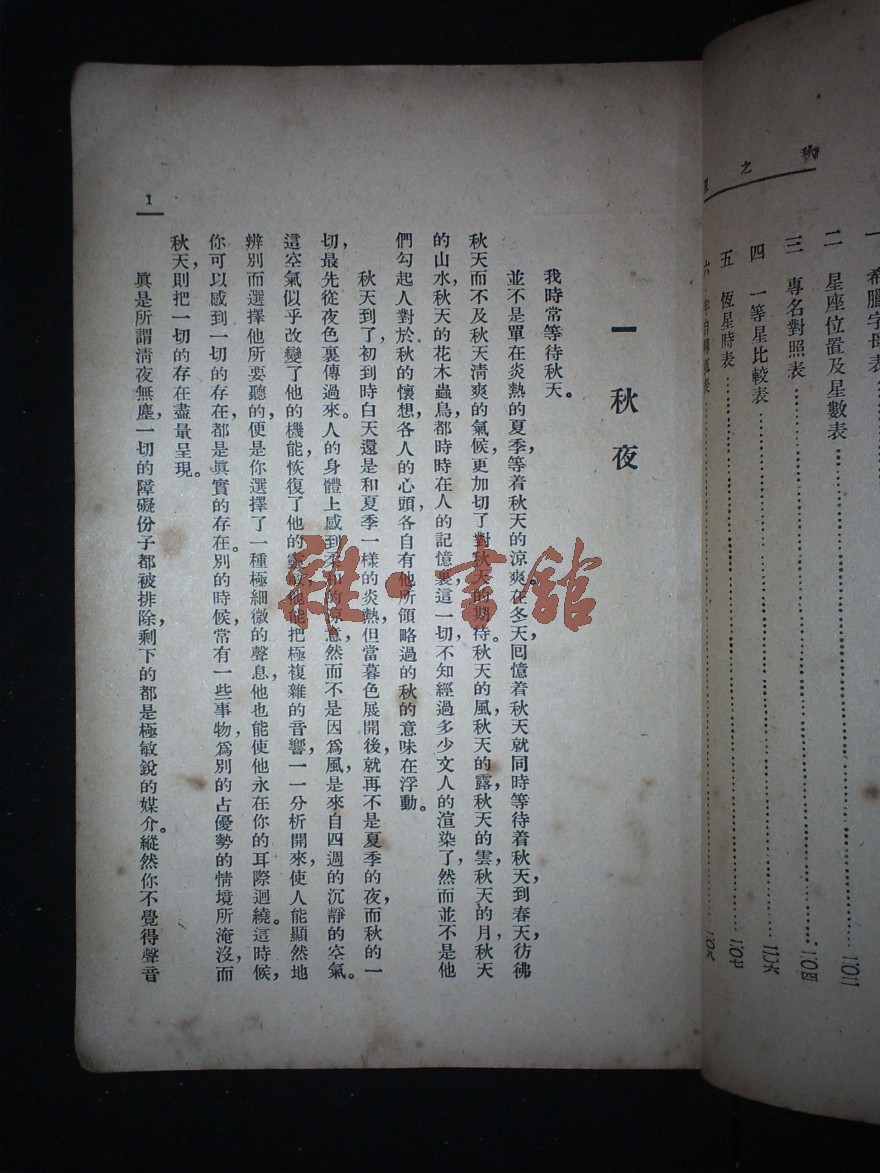 秋之星
一 希臘字母表
二 星座位置及星數表……二〇二
三 專名對照表……二〇四
四 一等星比較表……二〇六
五 恆星時表……二〇七
六
一 秋夜
我時常等待秋天。
並不是單在炎熱的夏季,等着秋天的涼爾。在冬天回憶着秋天,就同時等待着秋天,到春天,彷彿
秋天而不及秋天淸爽的氣候,更加切了對秋天的期待。秋天的風,秋天的露,秋天的雲,秋天的月,秋天
的山水,秋天的花木蟲鳥,都時時在人的記憶裏,這一切,不知經過多少文人的渲染了,然而並不是他
們勾起人對於秋的懷想,各人的心頭,各自有他所領略過的秋的意味在浮動。
秋天到了,初到時白天還是和夏季一樣的炎熱,但當暮色展開後,就再不是夏季的夜,而秋的一
切,最先從夜色裏傳過來。人的身體上感到柔和的涼意,然而不是因爲風,是來自四週的沉靜的空氣。
這空氣似乎改變了他的機能,恢復了他的靈敏,他能把極複雜的音響,一一分析開來,使人能顯然地
辨別而選擇他所要聽的,便是你選擇了一種極細微的聲息,他也能使他永在你的耳際迴繞。這時候,
你可以感到一切的存在,都是眞實的存在。別的時候,常有一些事物,爲別的占優勢的情境所淹沒,而
秋天則把一切的存在盡量呈現。
眞是所謂淸夜無塵,一切的障礙份子都被排除,剩下的都是極敏銳的媒介。縱然你不覺得聲音
1
雜·書舘